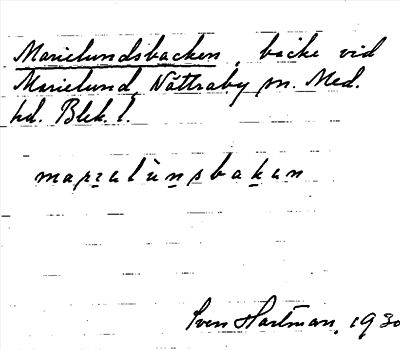 Marielundsbacken, backe vid
Marielund, Nättraby sn. Med.
hd. Blek. l.
marealùnsbakan
Sven Hartman, 1930